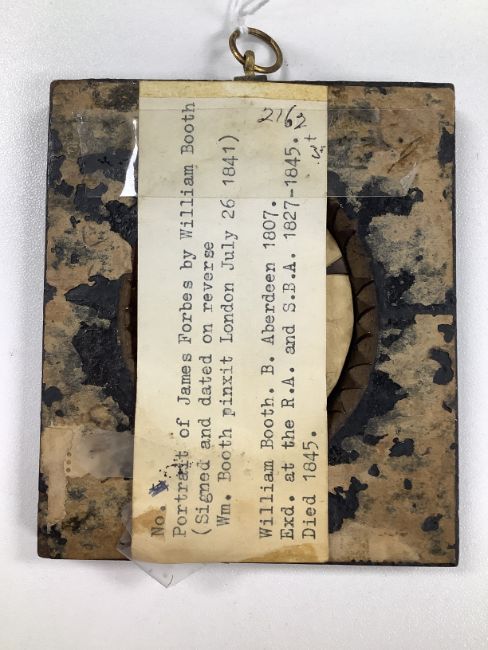 2762
No.
Portrait of James Forbes by William Booth
(Signed and dated on reverse
Wm. Booth pinxit London July 26 1841)
William Booth. B. Aberdeen 1807.
Exd. at the R.A. and S.B.A. 1827-1845.
Died 1845.